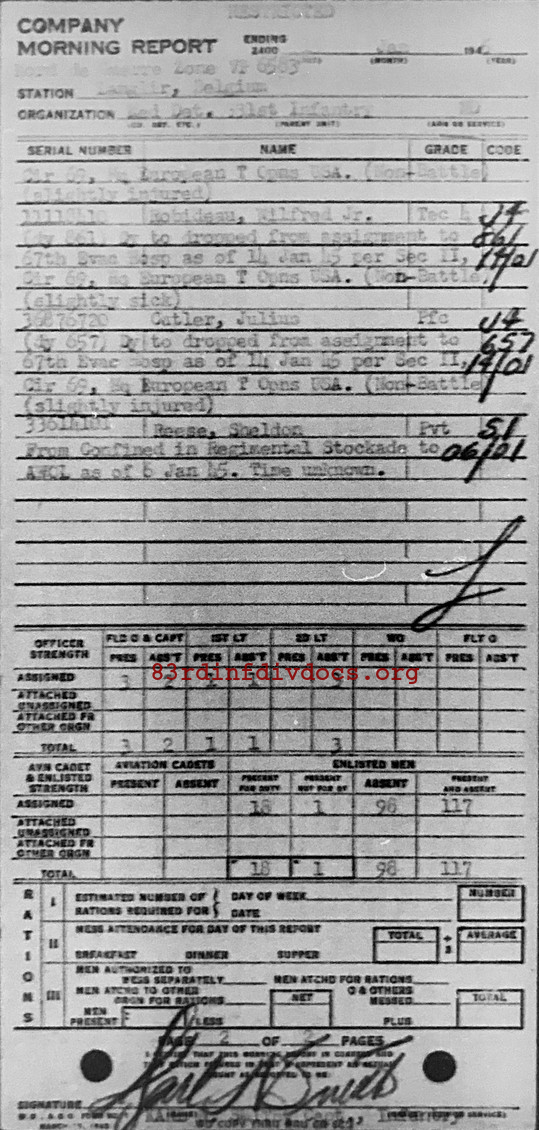 RESTRICTED
COMPANY
MORNING REPORT
ENDING
2400
Jan
194
(DAY)
(MONTH)
(YEAR)
Zone VP 6583
STATION
Langlir, Belgium
ORGANIZATION
Med Det. 331st Infantry
MD
(PARENT UNIT)
(ARM OR SERVICE)
SERIAL NUMBER NAME GRADE CODE
Cir 69, Hq European T Opns USA. (Non-Battle)
(slightly injured)
11118410 Robideau, Wilfred Jr. Tec 4 J4
(dy 861) Dy to dropped from assignment to 861
67th Evac Hosp as of 14 Jan 45 per Sec II, 14/01
Cir 69, Hq European T Opns USA. (Non-Battle)
(slightly sick)
36876720 Cutler, Julius Pfc J4
(dy 657) Dy to dropped from assignment to 657
67th Evac Hosp as of 14 Jan 45 per Sec II, 14/01
Cir 69, Hq European T Opns USA. (Non-Battle)
(slightly injured)
33614101 Reese, Sheldon Pvt 51
From Confined in Regimental Stockade to 06/01
AWOL as of 6 Jan 45. Time unknown.
OFFICER STRENGTH
FLD O & CAPT 1ST LT 2D LT WO FLT O
PRES ABS'T PRES ABS'T PRES ABS'T PRES ABS'T PRES ABS'T
83rdinfdivdocs.org
ASSIGNED 3 2 1 1 3
ATTACHED UNASSIGNED
ATTACHED FR OTHER ORGN
TOTAL 3 2 1 1 3
AVN CADET & ENLISTED STRENGTH
AVIATION CADETS ENLISTED MEN
PRESENT ABSENT PRESENT FOR DUTY PRESENT NOT FOR DY ABSENT PRESENT AND ABSENT
ASSIGNED 18 1 98 117
ATTACHED UNASSIGNED
ATTACHED FR OTHER ORGN
TOTAL 18 1 98 117
RATIONS
I ESTIMATED NUMBER OF RATIONS REQUIRED FOR DAY OF WEEK DATE NUMBER
II MESS ATTENDANCE FOR DAY OF THIS REPORT TOTAL ÷ 3 AVERAGE
BREAKFAST DINNER SUPPER
III MEN AUTHORIZED TO MESS SEPARATELY MEN ATCHD FOR RATIONS
MEN ATCHD TO OTHER ORGN FOR RATIONS NET O & OTHERS MESSED TOTAL
MEN PRESENT LESS PLUS
PAGE 2 OF 2 PAGES
SIGNATURE
Capt., Infantry